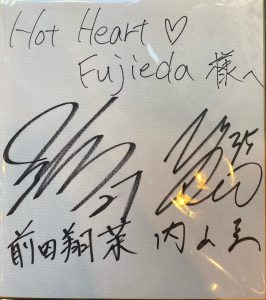 Hot Heart ♡
Fujieda 様へ
27 35
前田翔茉 内山圭